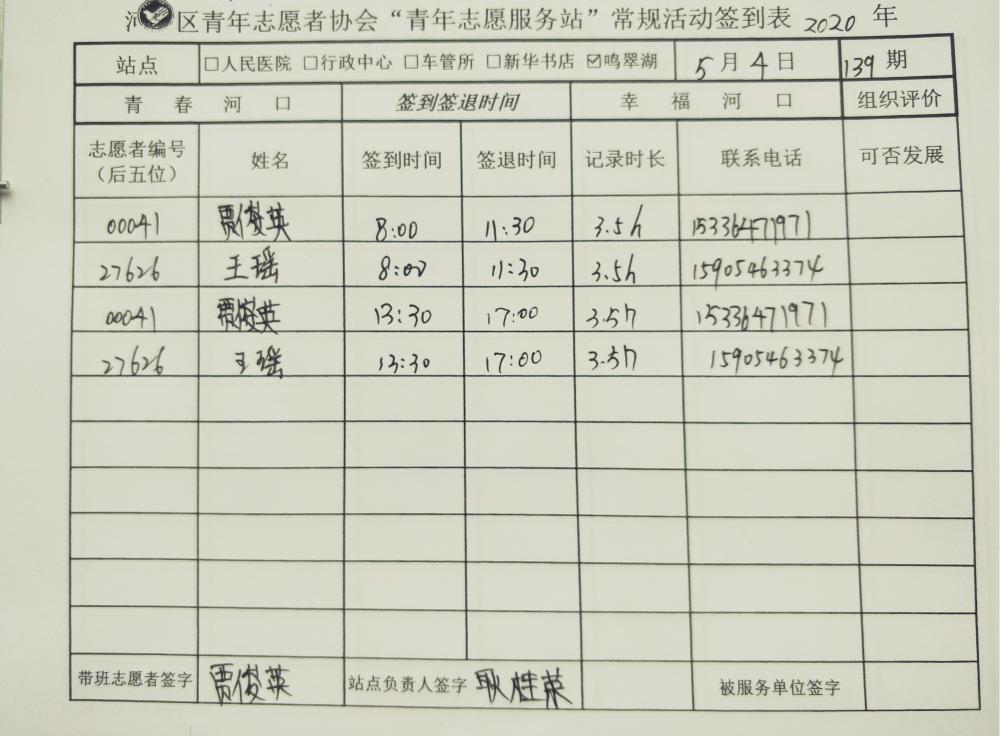 河区青年志愿者协会“青年志愿服务站”常规活动签到表 2020 年
站点 □人民医院 □行政中心 □车管所 □新华书店 ☑鸣翠湖 5月4日 139期
青春河口 签到签退时间 幸福河口 组织评价
志愿者编号（后五位） 姓名 签到时间 签退时间 记录时长 联系电话 可否发展
00041 贾俊英 8:00 11:30 3.5h 15336471971
27626 王瑶 8:00 11:30 3.5h 15905463374
00041 贾俊英 13:30 17:00 3.5h 15336471971
27626 王瑶 13:30 17:00 3.5h 15905463374
带班志愿者签字 贾俊英 站点负责人签字 耿桂荣 被服务单位签字